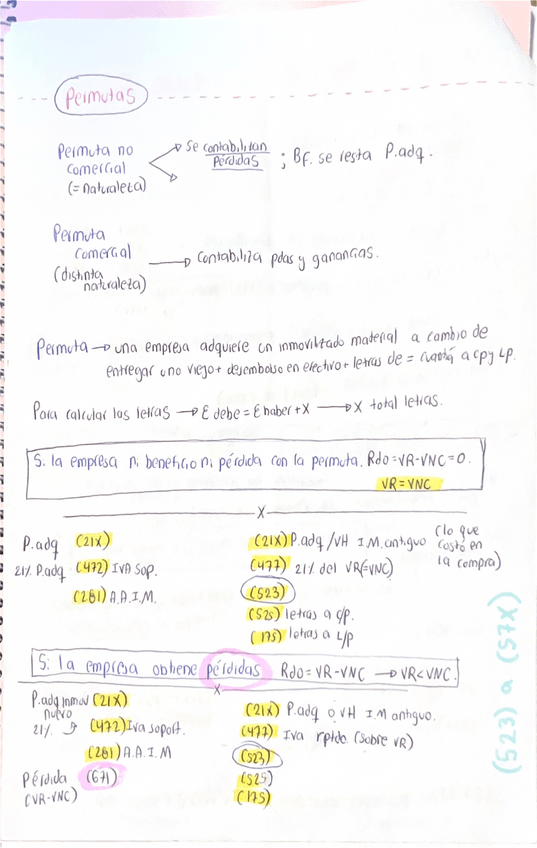 Permutas
Permuta no comercial (= naturaleza)
Se contabilizan Pérdidas ; Bf. se resta P.adq.
Permuta comercial (distinta naturaleza)
Contabiliza pdas y ganancias.
Permuta → una empresa adquiere un inmovilizado material a cambio de
entregar uno viejo + desembolso en efectivo + letras de = cuantía a cp y LP.
Para calcular las letras → Σ debe = Σ haber + X → X total letras.
Si la empresa ni beneficio ni pérdida con la permuta. Rdo = VR - VNC = 0.
VR = VNC
X
P.adq (21X)
21% P.adq (472) IVA sop.
(281) A.A.I.M.
(21X) P.adq / VH I.M. antiguo (lo que costó en la compra)
(477) 21% del VR (=VNC)
(523)
(525) letras a c/p.
(175) letras a L/p
Si la empresa obtiene pérdidas Rdo = VR - VNC → VR < VNC.
X
P.adq inmov nuevo (21X)
21% (472) Iva soport.
(281) A.A.I.M
Pérdida (VR-VNC) (671)
(21X) P.adq o VH I.M antiguo.
(477) Iva rptdo (sobre VR)
(523)
(525)
(175)
(523) a (57X)